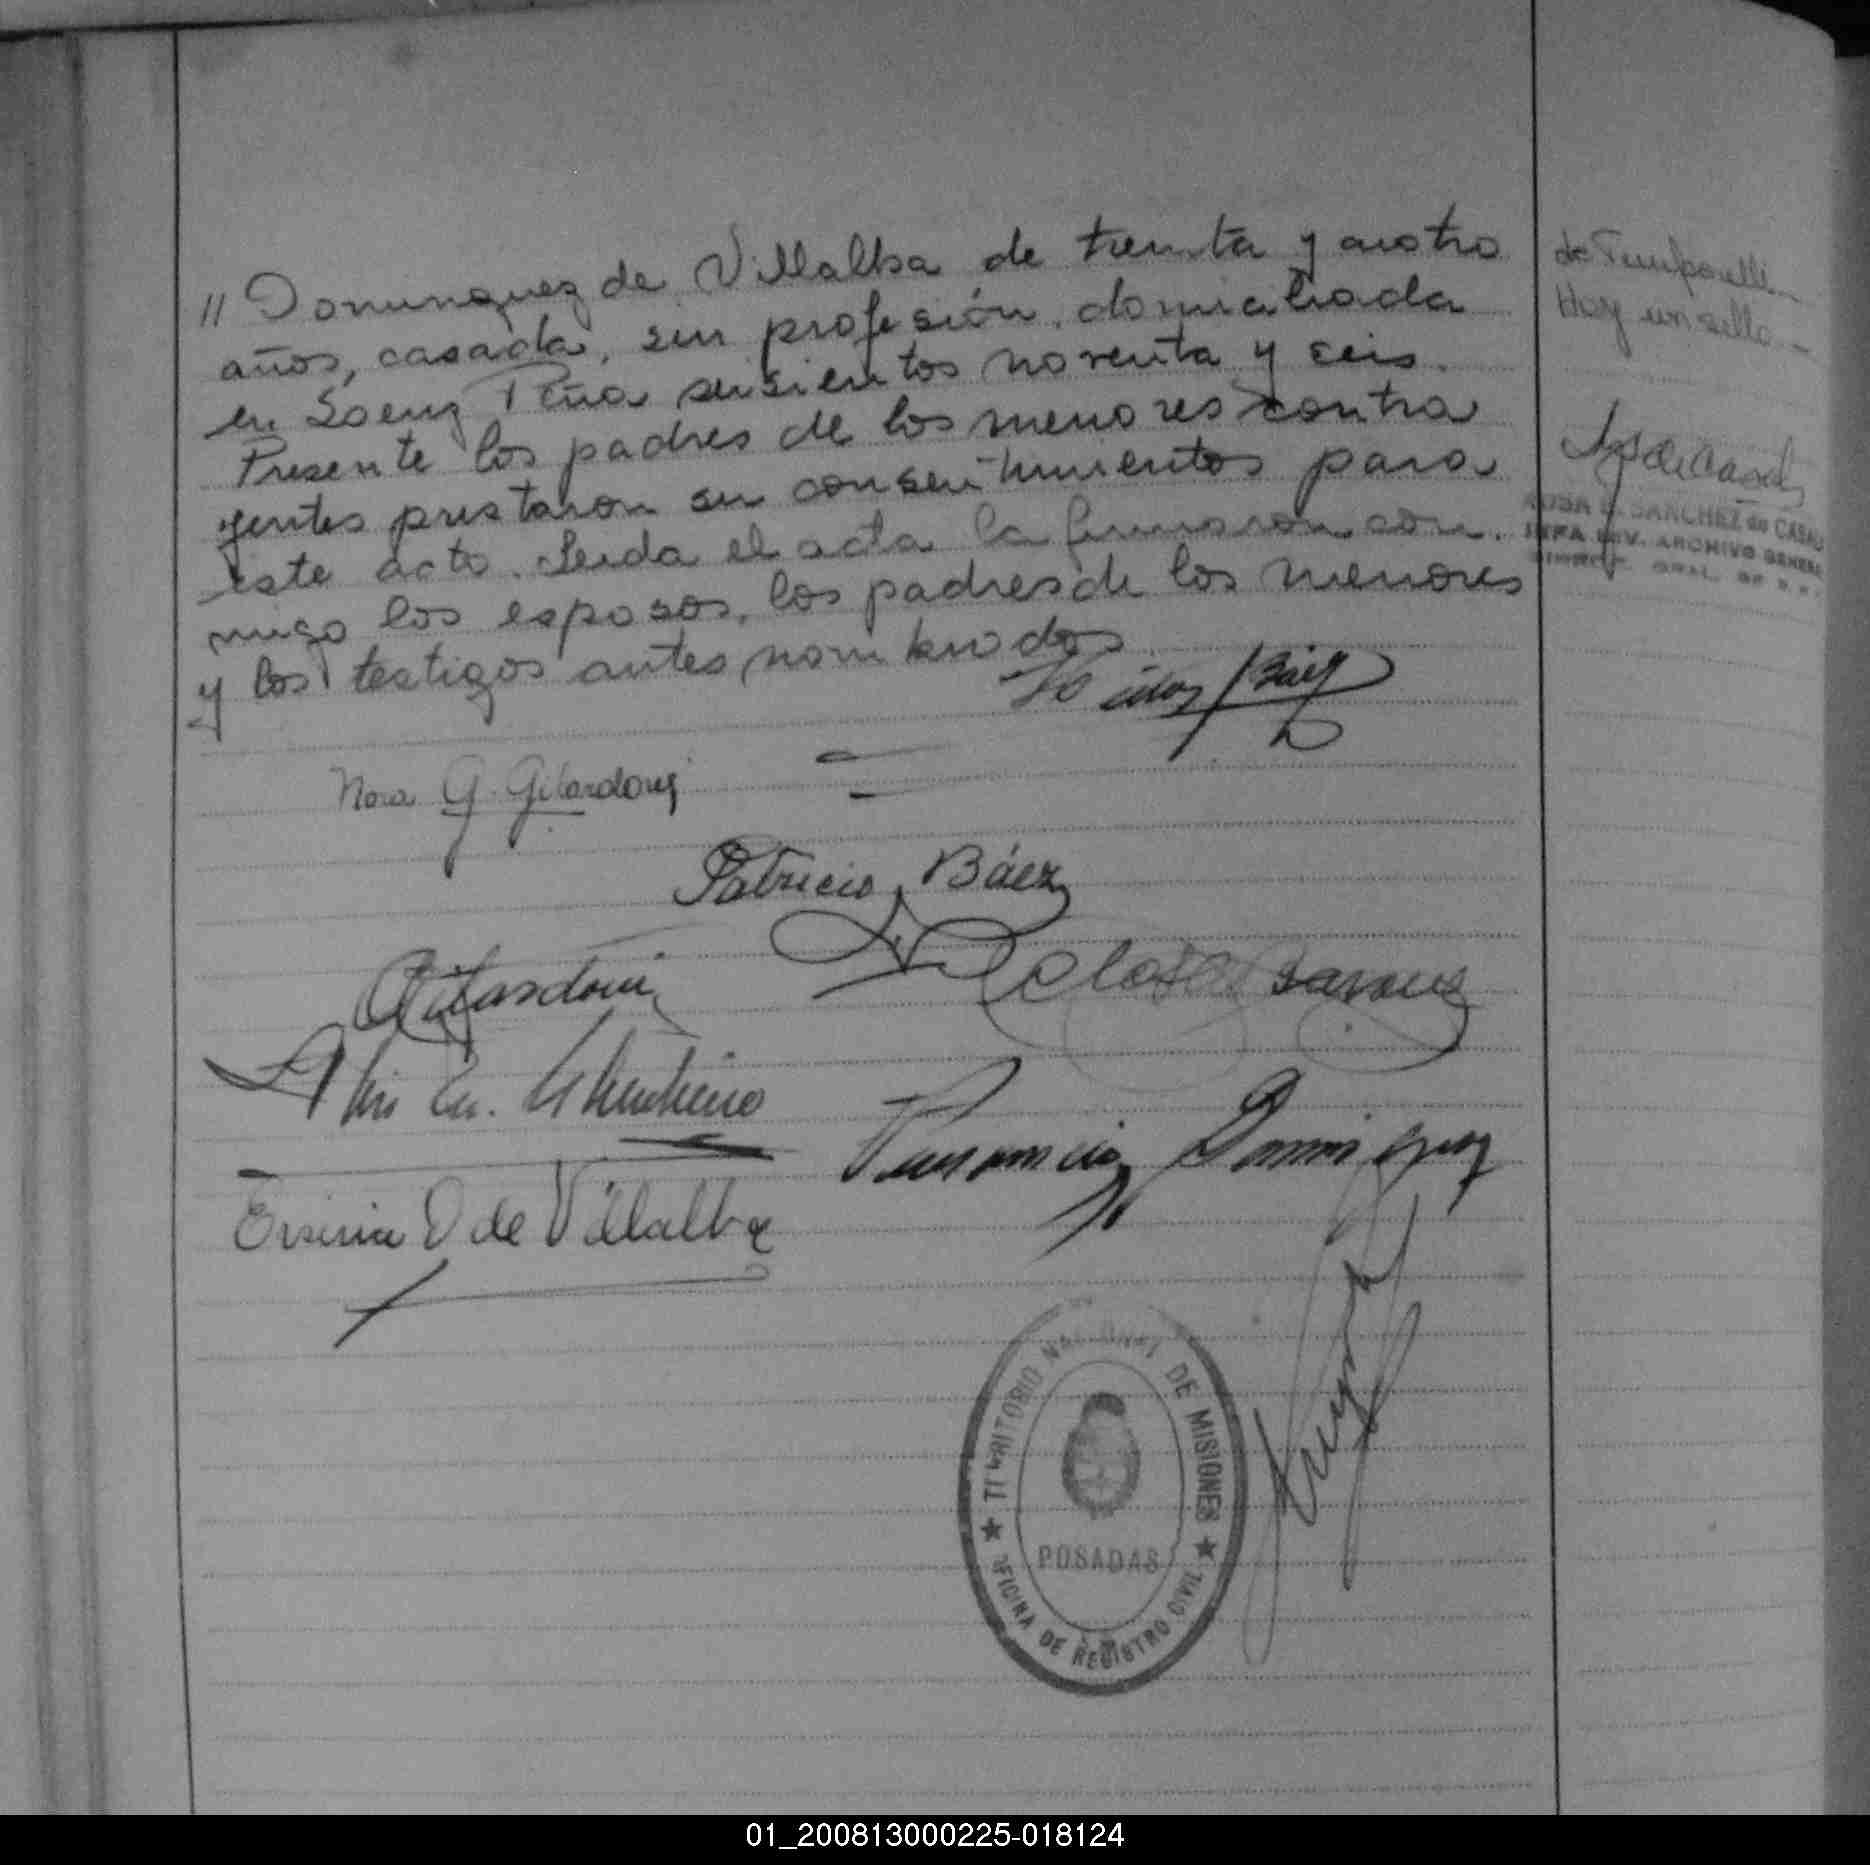 // Dominguez de Villalba de treinta y cuatro
años, casada, sin profesión, domiciliada
en Saenz Peña seiscientos noventa y seis.
Presente los padres de los menores contra
yentes prestaron su consentimientos para
este acto. Leida el acta la firmaron con.
migo los esposos, los padres de los menores
y los testigos antes nombrados
Báez
Nora G. Gilardoni
Patricio Báez
Gilardoni
Dominguez
Ersinia D de Villalba
TERRITORIO NACIONAL DE MISIONES
POSADAS
OFICINA DE REGISTRO CIVIL
de
Hay un sello.-
ROSA E. SANCHEZ de CASALS
JEFA DIV. ARCHIVO GENERAL
DIRECC. GRAL. DE R. P.
01_200813000225-018124